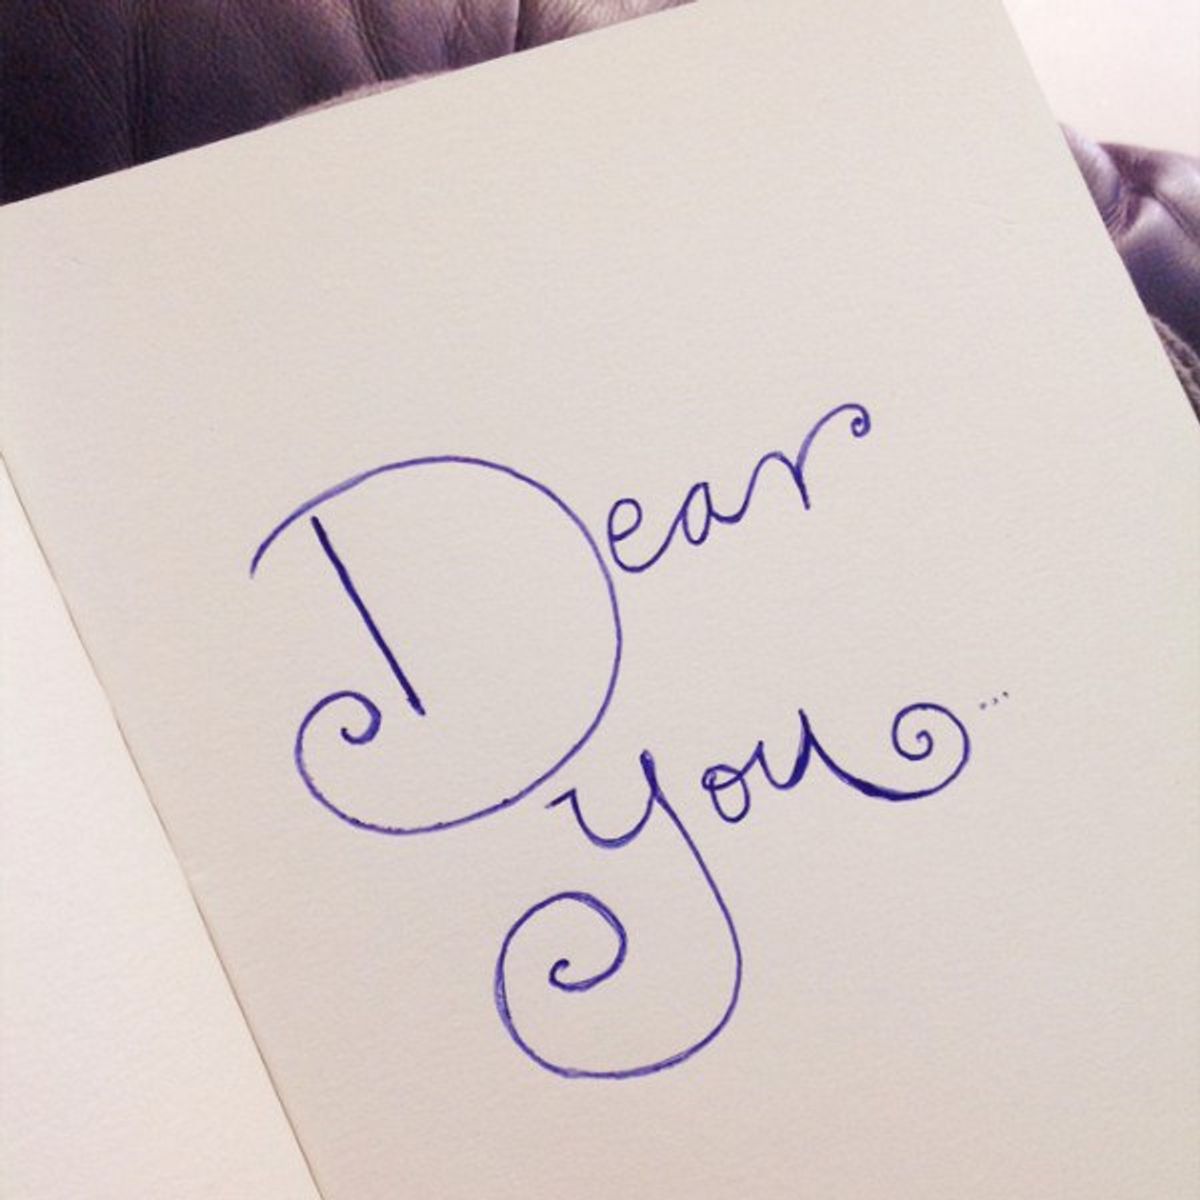 Dear
you...